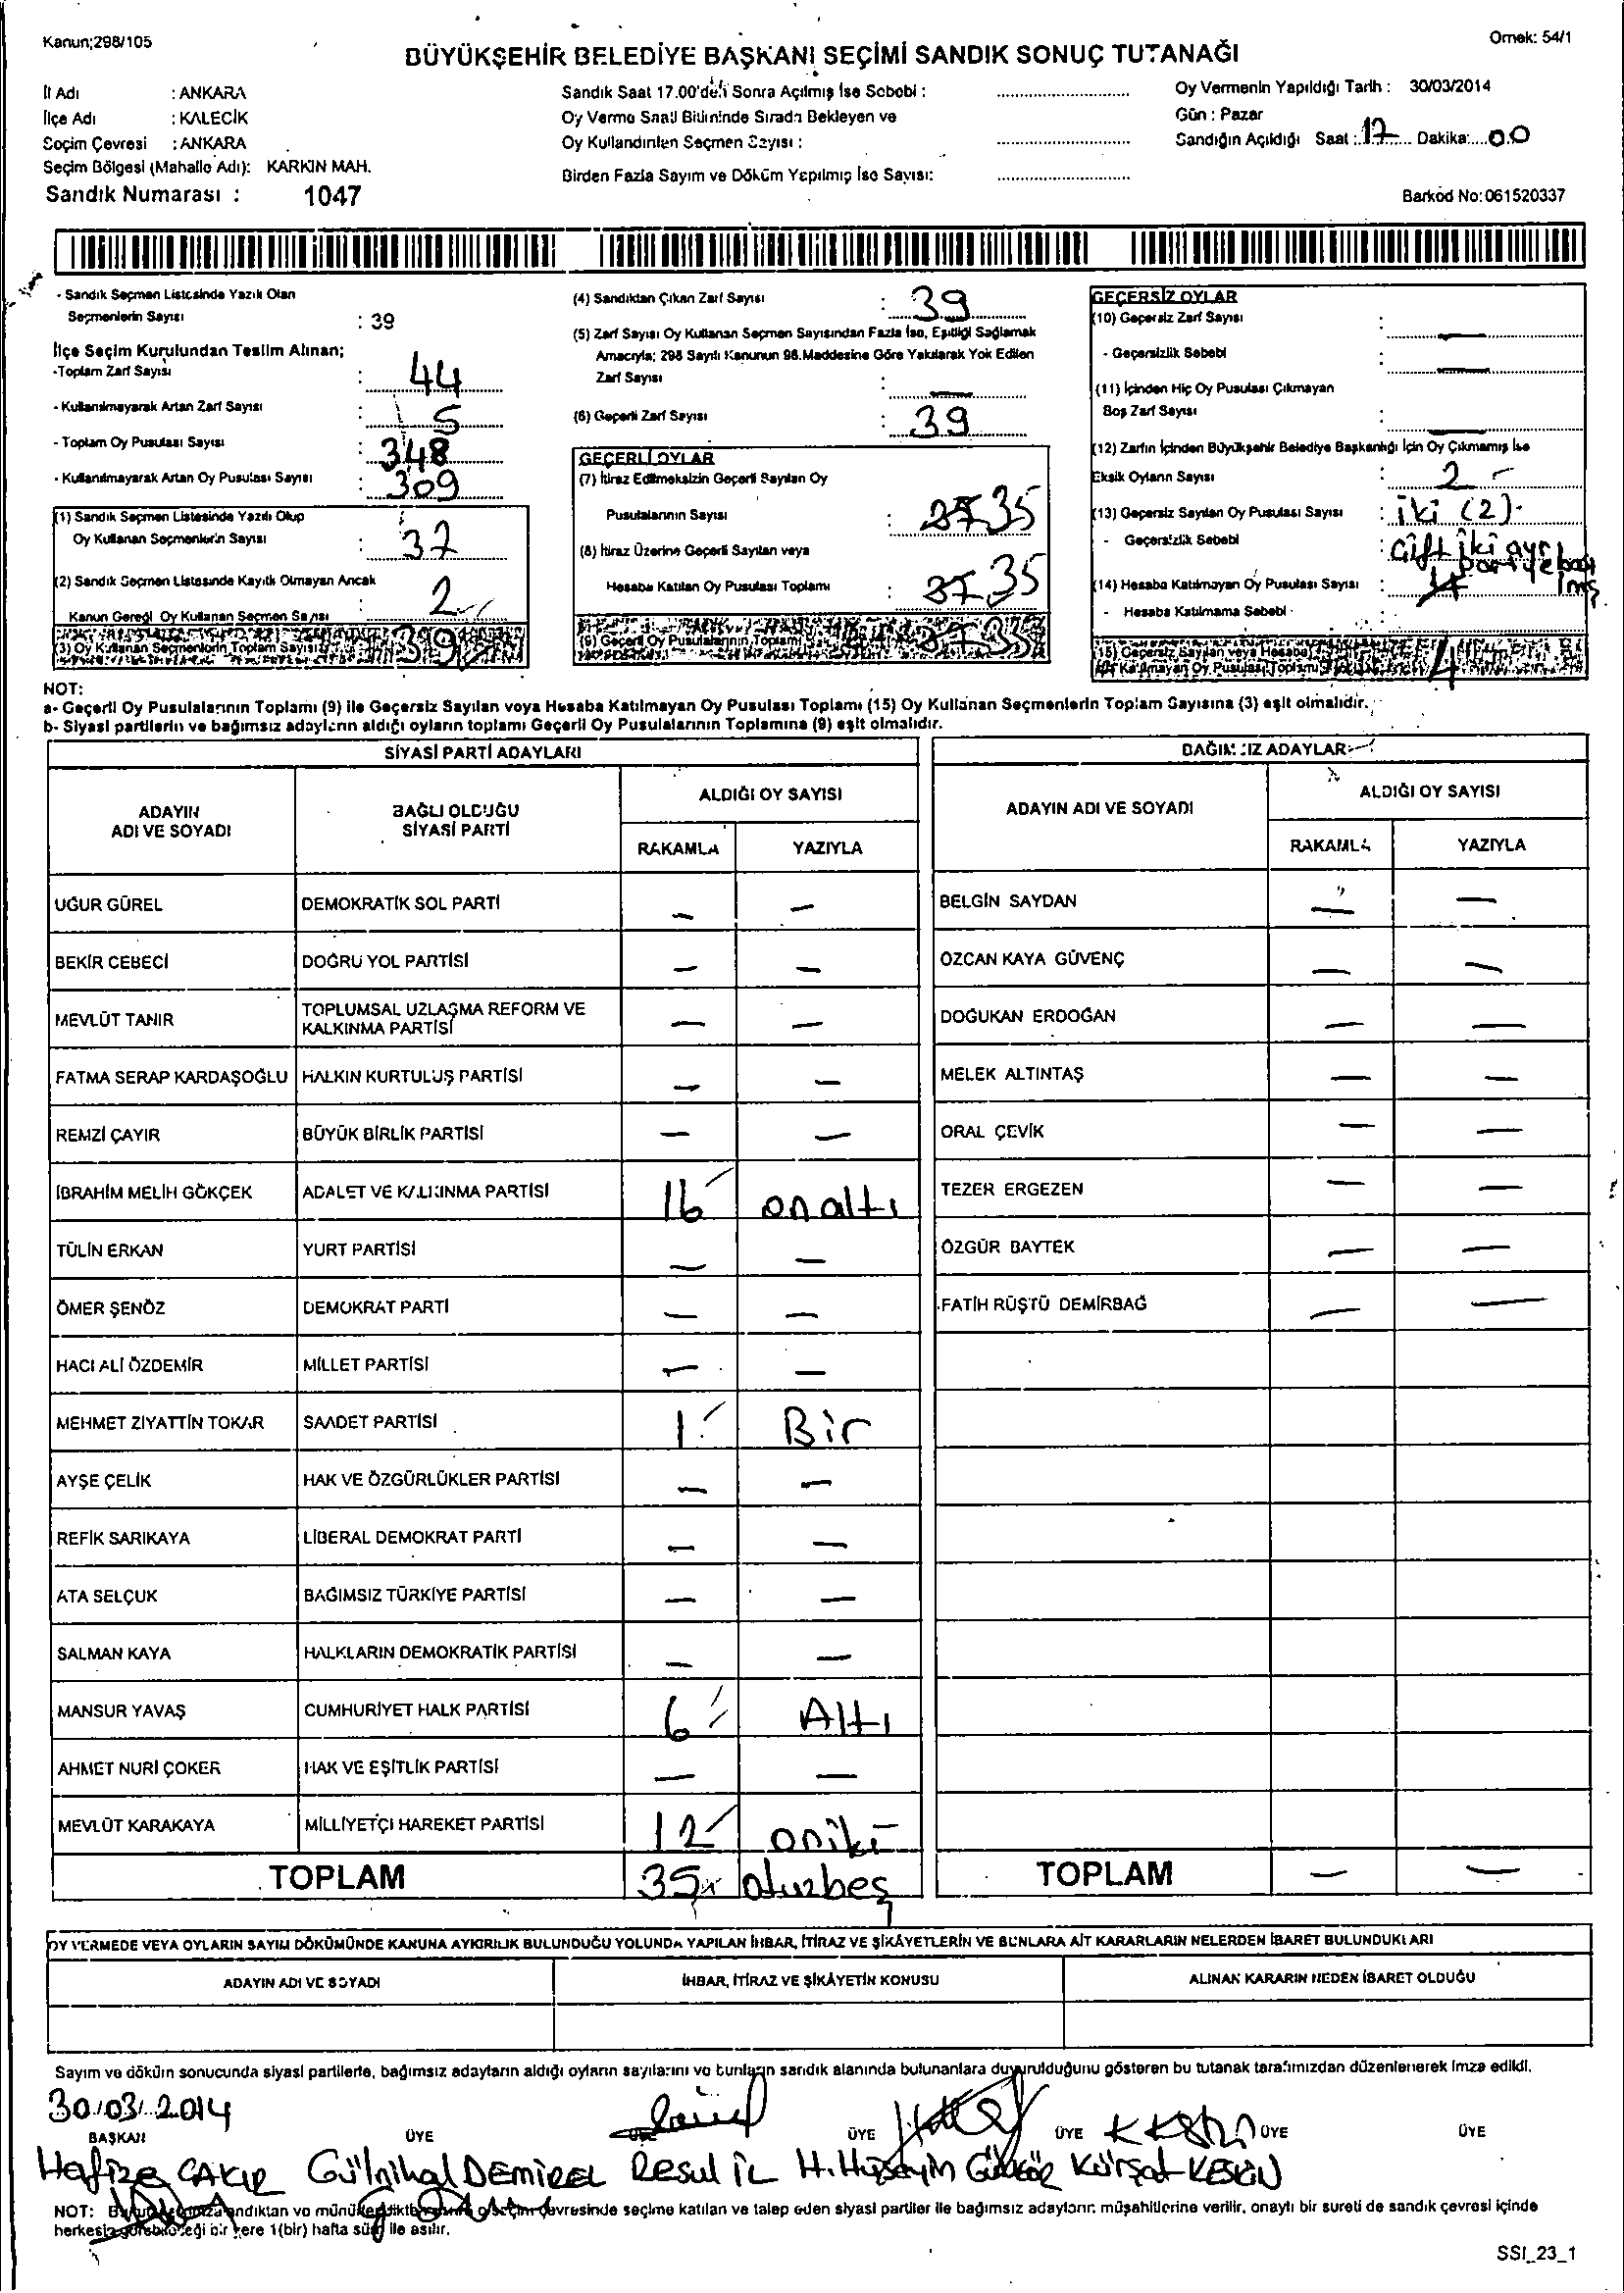 Kanun;298/105
Örnek: 54/1
BÜYÜKŞEHİR BELEDİYE BAŞKANI SEÇİMİ SANDIK SONUÇ TUTANAĞI
İl Adı : ANKARA
İlçe Adı : KALECİK
Seçim Çevresi : ANKARA
Seçim Bölgesi (Mahalle Adı): KARKIN MAH.
Sandık Numarası : 1047
Sandık Saat 17.00'den Sonra Açılmış İse Sebebi :
Oy Verme Saati Bitiminde Sırada Bekleyen ve
Oy Kullandırılan Seçmen Sayısı :
Birden Fazla Sayım ve Döküm Yapılmış İse Sayısı:
Oy Vermenin Yapıldığı Tarih : 30/03/2014
Gün : Pazar
Sandığın Açıldığı Saat : 17 Dakika: 00
Barkod No: 061520337
- Sandık Seçmen Listesinde Yazılı Olan
Seçmenlerin Sayısı : 39
İlçe Seçim Kurulundan Teslim Alınan;
-Toplam Zarf Sayısı : 44
- Kullanılmayarak Artan Zarf Sayısı : 5
- Toplam Oy Pusulası Sayısı : 348
- Kullanılmayarak Artan Oy Pusulası Sayısı : 309
(1) Sandık Seçmen Listesinde Yazılı Olup
Oy Kullanan Seçmenlerin Sayısı : 37
(2) Sandık Seçmen Listesinde Kayıtlı Olmayan Ancak
Kanun Gereği Oy Kullanan Seçmen Sayısı : 2
(3) Oy Kullanan Seçmenlerin Toplam Sayısı : 39
(4) Sandıktan Çıkan Zarf Sayısı : 39
(5) Zarf Sayısı Oy Kullanan Seçmen Sayısından Fazla İse, Eşitliği Sağlamak
Amacıyla; 298 Sayılı Kanunun 98.Maddesine Göre Yakılarak Yok Edilen
Zarf Sayısı : —
(6) Geçerli Zarf Sayısı : 39
GEÇERLİ OYLAR
(7) İtiraz Edilmeksizin Geçerli Sayılan Oy
Pusulalarının Sayısı : 37 35
(8) İtiraz Üzerine Geçerli Sayılan veya
Hesaba Katılan Oy Pusulası Toplamı : 37 35
(9) Geçerli Oy Pusulalarının Toplamı : 37 35
GEÇERSİZ OYLAR
(10) Geçersiz Zarf Sayısı : —
- Geçersizlik Sebebi : —
(11) İçinden Hiç Oy Pusulası Çıkmayan
Boş Zarf Sayısı : —
(12) Zarfın İçinden Büyükşehir Belediye Başkanlığı İçin Oy Çıkmamış İse
Eksik Oyların Sayısı : 2
(13) Geçersiz Sayılan Oy Pusulası Sayısı : iki (2)
- Geçersizlik Sebebi : Çift iki ayrı
partiye
(14) Hesaba Katılmayan Oy Pusulası Sayısı :
- Hesaba Katılmama Sebebi :
(15) Geçersiz Sayılan veya Hesaba
Katılmayan Oy Pusulası Toplamı 4
NOT:
a- Geçerli Oy Pusulalarının Toplamı (9) ile Geçersiz Sayılan veya Hesaba Katılmayan Oy Pusulası Toplamı (15) Oy Kullanan Seçmenlerin Toplam Sayısına (3) eşit olmalıdır.
b- Siyasi partilerin ve bağımsız adayların aldığı oyların toplamı Geçerli Oy Pusulalarının Toplamına (9) eşit olmalıdır.
SİYASİ PARTİ ADAYLARI
ADAYIN ADI VE SOYADI BAĞLI OLDUĞU SİYASİ PARTİ ALDIĞI OY SAYISI
RAKAMLA YAZIYLA
UĞUR GÜREL DEMOKRATİK SOL PARTİ — —
BEKİR CEBECİ DOĞRU YOL PARTİSİ — —
MEVLÜT TANIR TOPLUMSAL UZLAŞMA REFORM VE KALKINMA PARTİSİ — —
FATMA SERAP KARDAŞOĞLU HALKIN KURTULUŞ PARTİSİ — —
REMZİ ÇAYIR BÜYÜK BİRLİK PARTİSİ — —
İBRAHİM MELİH GÖKÇEK ADALET VE KALKINMA PARTİSİ 16 onaltı
TÜLİN ERKAN YURT PARTİSİ — —
ÖMER ŞENÖZ DEMOKRAT PARTİ — —
HACI ALİ ÖZDEMİR MİLLET PARTİSİ — —
MEHMET ZİYATTİN TOKAR SAADET PARTİSİ 1 Bir
AYŞE ÇELİK HAK VE ÖZGÜRLÜKLER PARTİSİ — —
REFİK SARIKAYA LİBERAL DEMOKRAT PARTİ — —
ATA SELÇUK BAĞIMSIZ TÜRKİYE PARTİSİ — —
SALMAN KAYA HALKLARIN DEMOKRATİK PARTİSİ — —
MANSUR YAVAŞ CUMHURİYET HALK PARTİSİ 6 Altı
AHMET NURİ ÇOKER HAK VE EŞİTLİK PARTİSİ — —
MEVLÜT KARAKAYA MİLLİYETÇİ HAREKET PARTİSİ 12 oniki
TOPLAM 35 otuzbeş
BAĞIMSIZ ADAYLAR
ADAYIN ADI VE SOYADI ALDIĞI OY SAYISI
RAKAMLA YAZIYLA
BELGİN SAYDAN — —
ÖZCAN KAYA GÜVENÇ — —
DOĞUKAN ERDOĞAN — —
MELEK ALTINTAŞ — —
ORAL ÇEVİK — —
TEZER ERGEZEN — —
ÖZGÜR BAYTEK — —
FATİH RÜŞTÜ DEMİRBAĞ — —
TOPLAM — —
OY VERMEDE VEYA OYLARIN SAYIM DÖKÜMÜNDE KANUNA AYKIRILIK BULUNDUĞU YOLUNDA YAPILAN İHBAR, İTİRAZ VE ŞİKÂYETLERİN VE BUNLARA AİT KARARLARIN NELERDEN İBARET BULUNDUKLARI
ADAYIN ADI VE SOYADI İHBAR, İTİRAZ VE ŞİKÂYETİN KONUSU ALINAN KARARIN NEDEN İBARET OLDUĞU
Sayım ve döküm sonucunda siyasi partilerle, bağımsız adayların aldığı oyların sayılarını ve bunların sandık alanında bulunanlara duyurulduğunu gösteren bu tutanak tarafımızdan düzenlenerek imza edildi.
30/03/2014
BAŞKAN ÜYE ÜYE ÜYE ÜYE ÜYE
Hafize ÇAKIR Gülnihal DEMİREL Resul İL H. Hüseyin Kürşat KESKİN
NOT: seçim çevresinde seçime katılan ve talep eden siyasi partiler ile bağımsız adayların müşahitlerine verilir, onaylı bir sureti de sandık çevresi içinde
herkesin görebileceği bir yere 1(bir) hafta süre ile asılır.
SSI_23_1